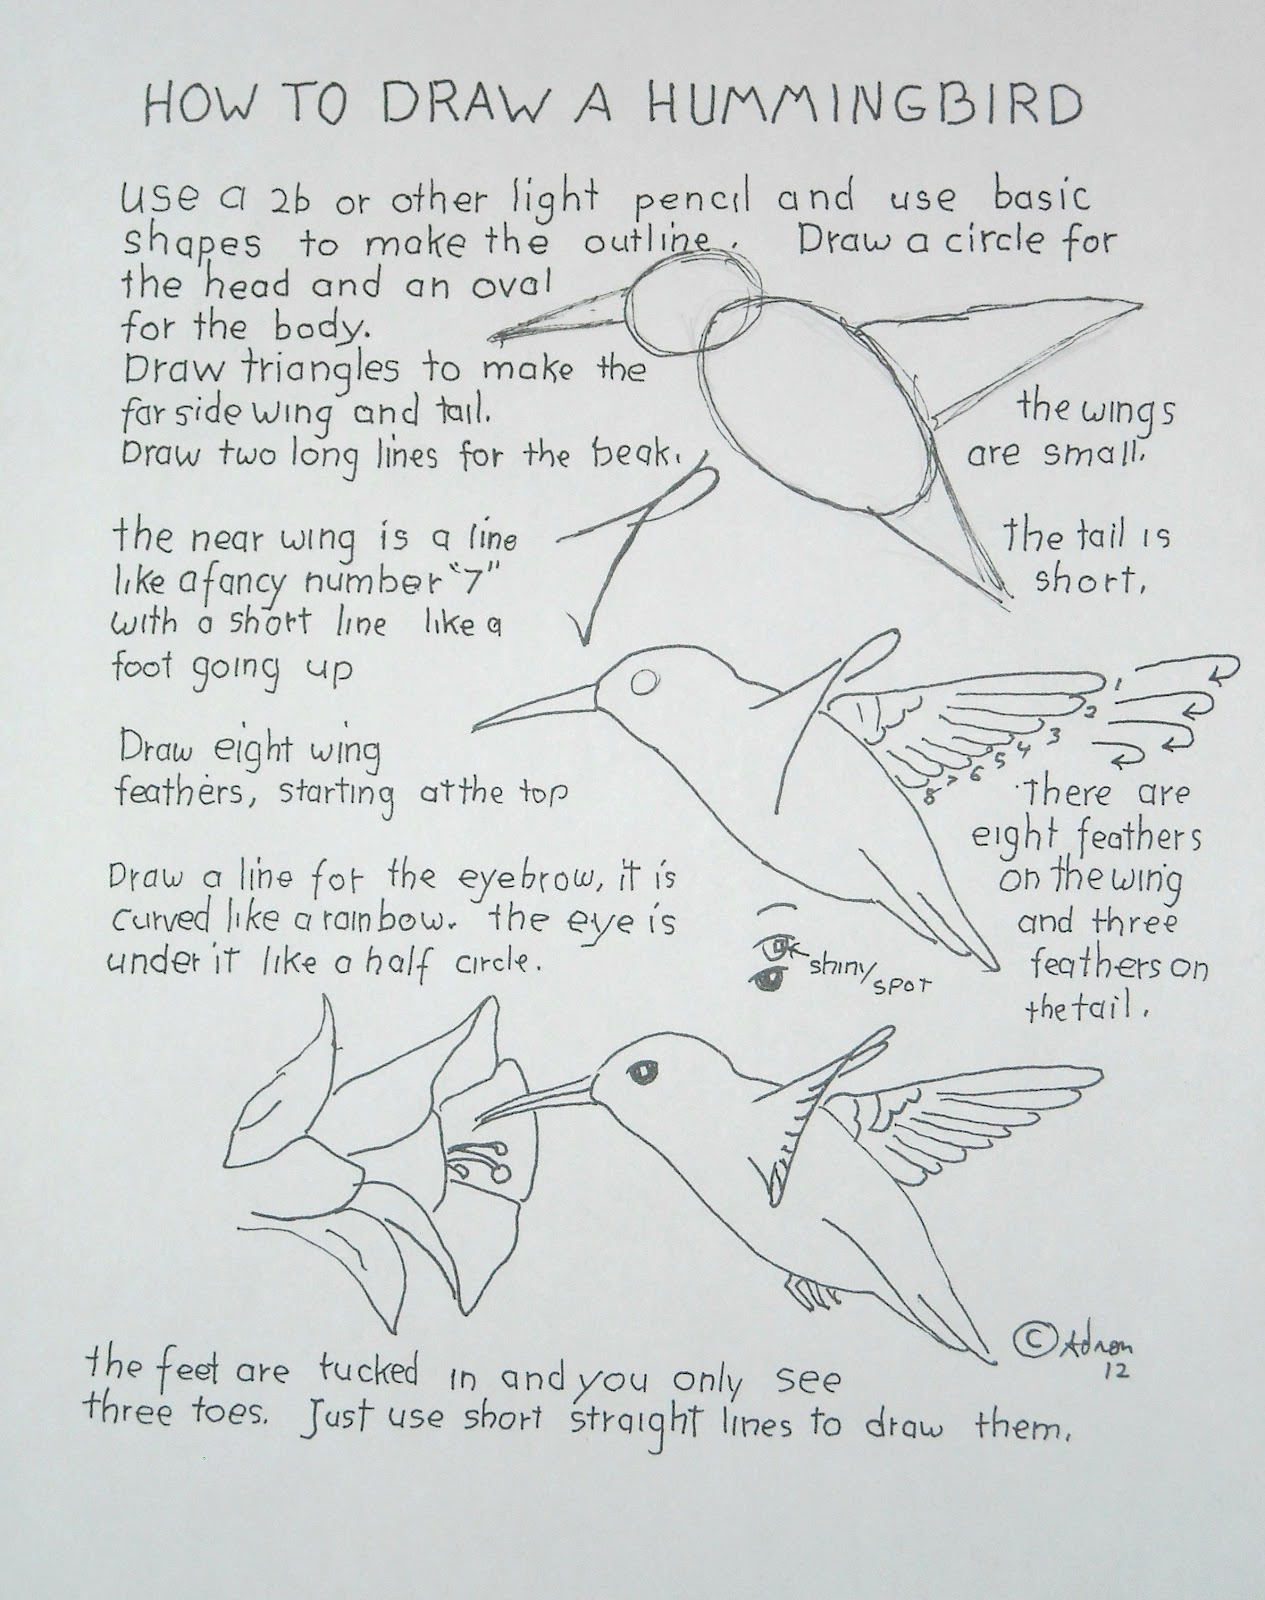 HOW TO DRAW A HUMMINGBIRD
use a 2b or other light pencil and use basic
shapes to make the outline. Draw a circle for
the head and an oval
for the body.
Draw triangles to make the
far side wing and tail.
Draw two long lines for the beak.
the wings
are small.
the near wing is a line
like a fancy number "7"
with a short line like a
foot going up
the tail is
short.
Draw eight wing
feathers, starting at the top
1
2
3
4
5
6
7
8
There are
eight feathers
on the wing
and three
feathers on
the tail.
Draw a line for the eyebrow, it is
curved like a rainbow. the eye is
under it like a half circle.
shiny
spot
© Adron
12
the feet are tucked in and you only see
three toes. Just use short straight lines to draw them.